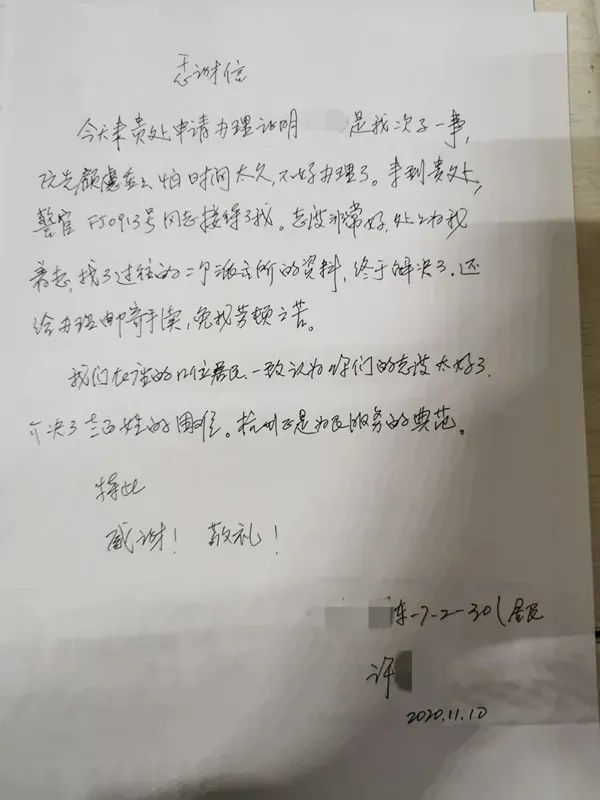 感谢信
今天来贵处申请办理证明 是我次子一事,
原先顾虑重重怕时间太久,不好办理了。来到贵处,
警官FJ0913号同志接待了我。态度非常好,处处为我
着想,找了过往的二个派出所的资料,终于解决了。还
给办理邮寄手续,免我劳顿之苦。
我们在座的几位居民,一致认为你们的态度太好了,
介决了老百姓的困难。杭州正是为民服务的典范。
特此
感谢! 敬礼!
车-7-2-301居民
许
2020.11.10